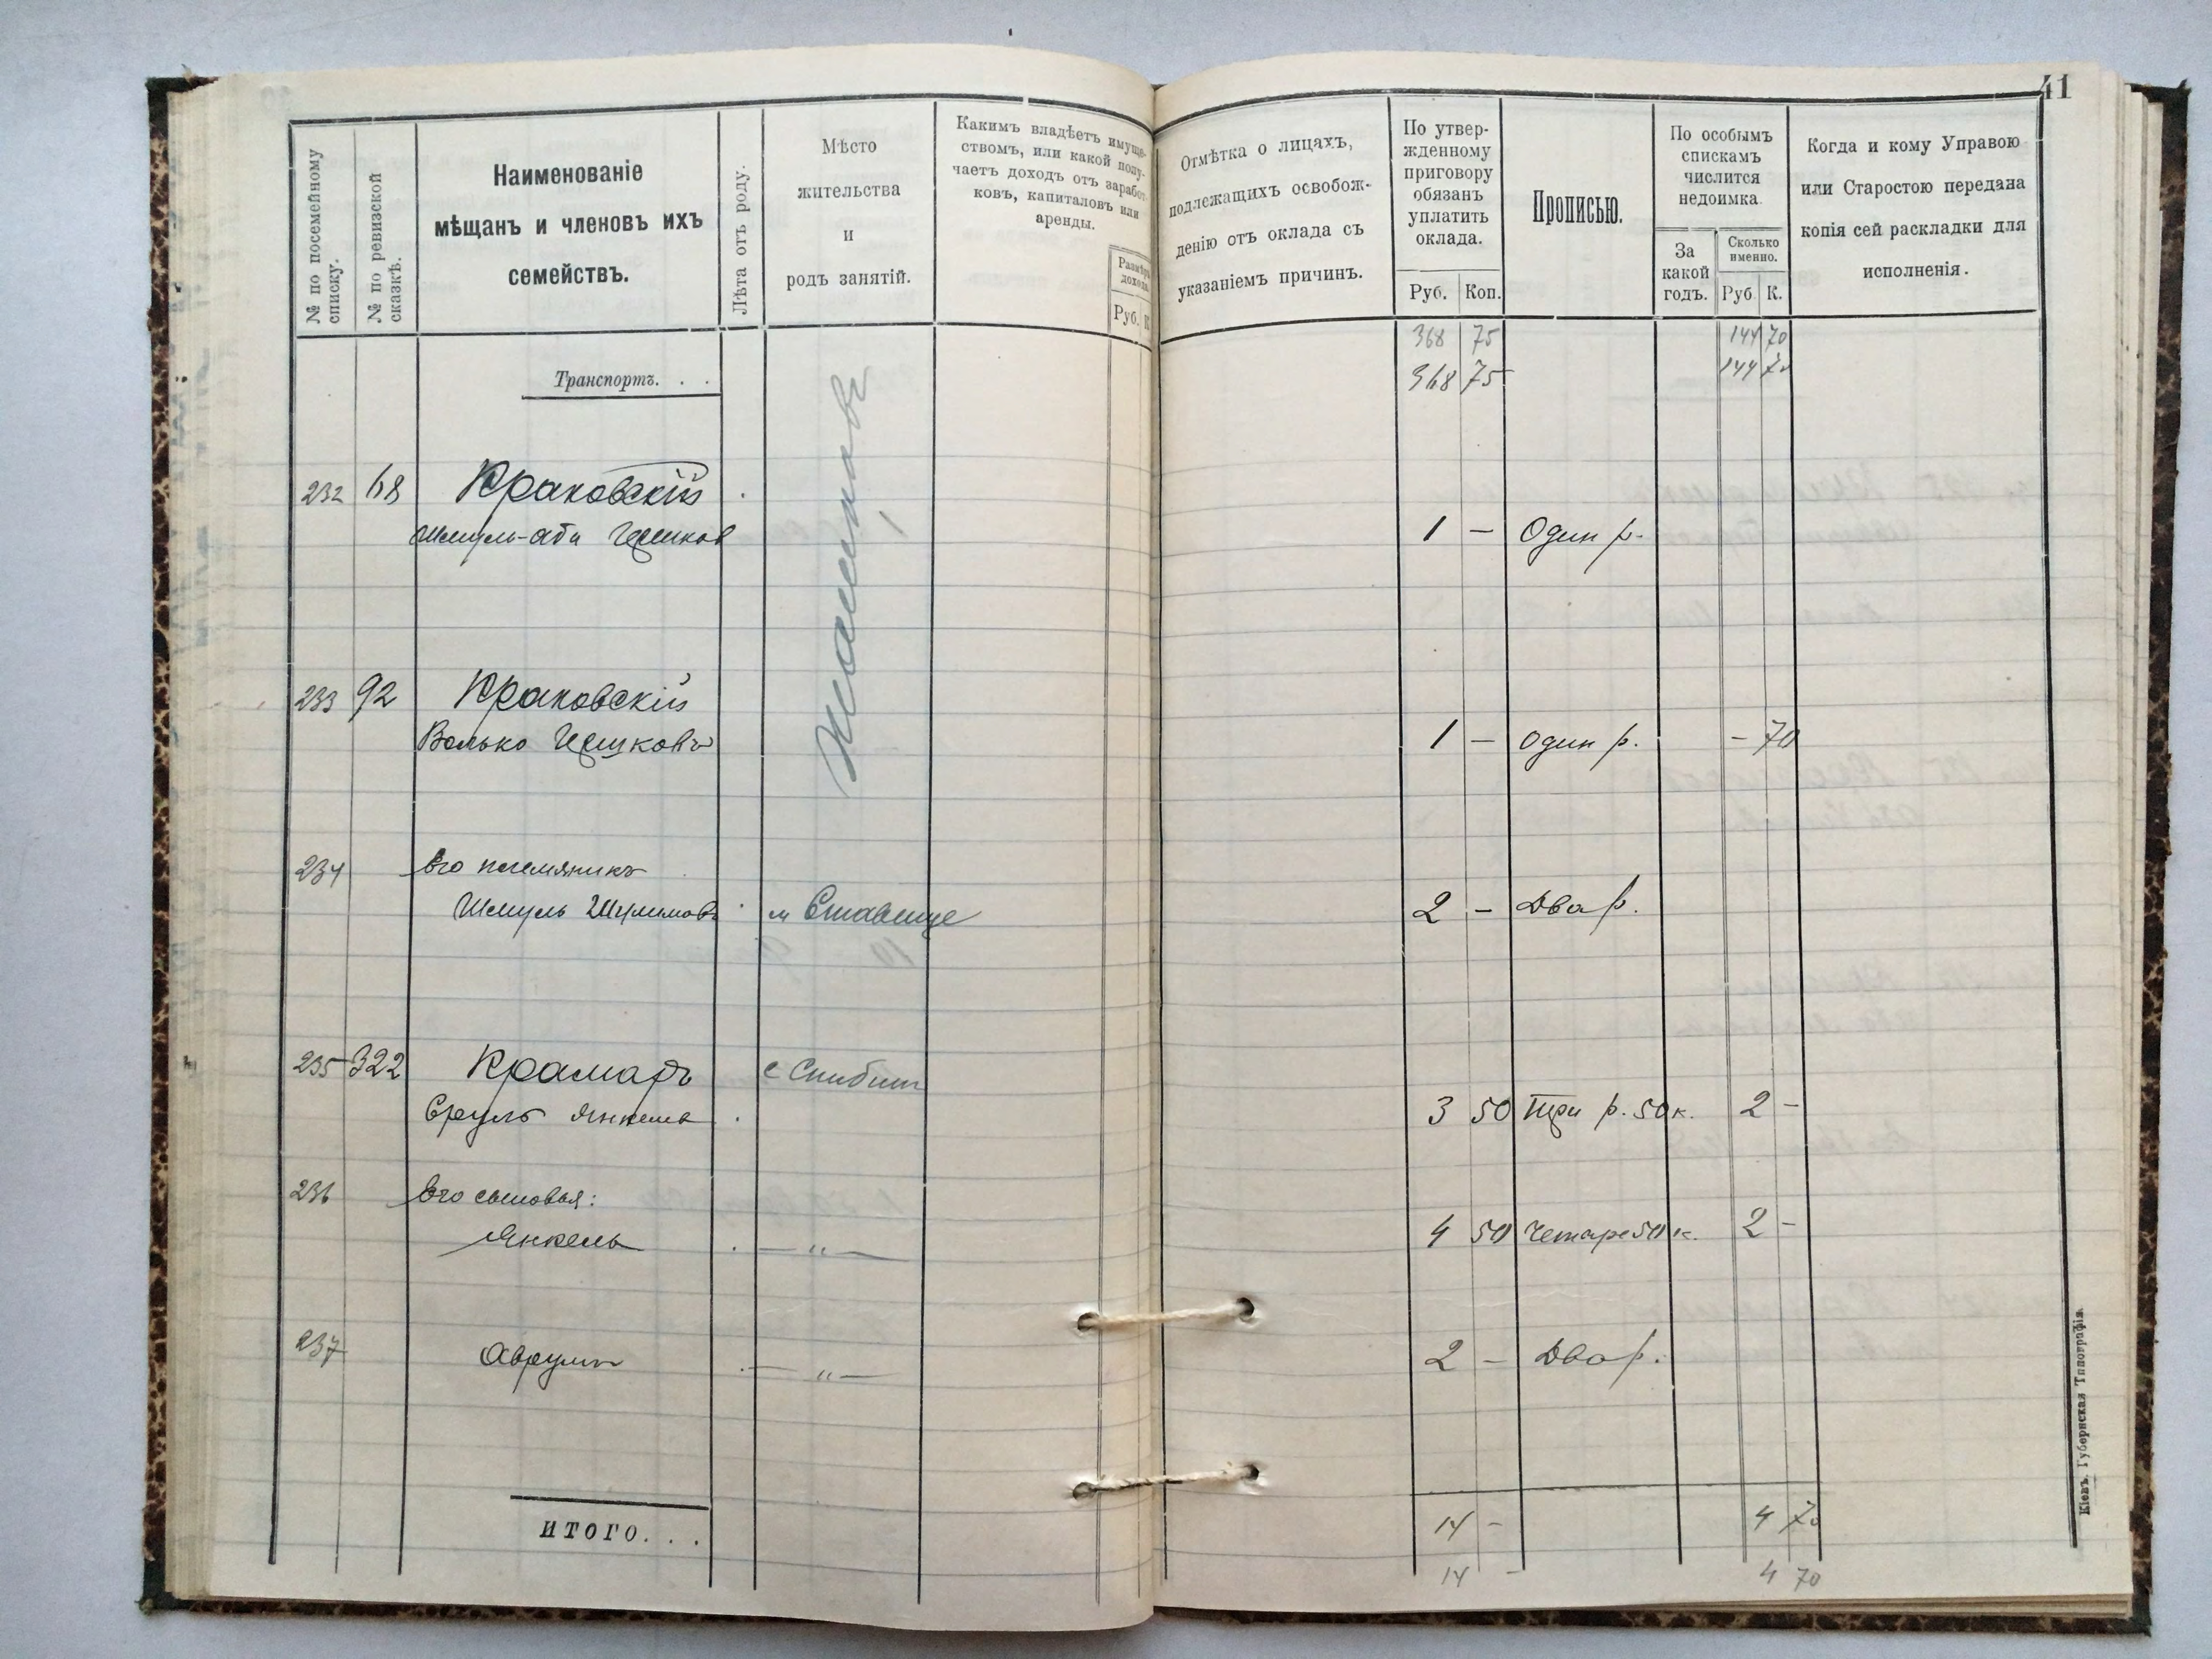 41
№ по посемейному списку.
№ по ревизской сказкѣ.
Наименованіе
мѣщанъ и членовъ ихъ
семействъ.
Лѣта отъ роду.
Мѣсто
жительства
и
родъ занятій.
Какимъ владѣетъ имуще-
ствомъ, или какой полу-
чаетъ доходъ отъ заработ-
ковъ, капиталовъ или
аренды.
Размѣръ
дохода
Руб. К
Отмѣтка о лицахъ,
подлежащихъ освобож-
денію отъ оклада съ
указаніемъ причинъ.
По утвер-
жденному
приговору
обязанъ
уплатить
оклада.
Руб. Коп.
Прописью.
По особымъ
спискамъ
числится
недоимка.
За
какой
годъ.
Сколько
именно.
Руб К.
Когда и кому Управою
или Старостою передана
копія сей раскладки для
исполненія.
368 75 144 70
Транспортъ. . .
368 75 144 70
Жашковъ
232 68 Краковскій
Шмуль-Аба Гершков 1 — Один р.
233 92 Краковскій
Волько Гершковъ 1 — один р. — 70
234 Его племяникъ
Шмуль Шулимовъ м Ставище 2 — Два р.
235 322 Крамаръ с
Сруль Янкель 3 50 Три р. 50 к. 2 —
236 Его сыновья:
Янкель — „ — 4 50 Четаре 50 к. 2 —
237 Аврумъ — „ — 2 — Два р.
ИТОГО. . . 14 — 4 70
14 — 4 70
Кіевъ. Губернская Типографія.